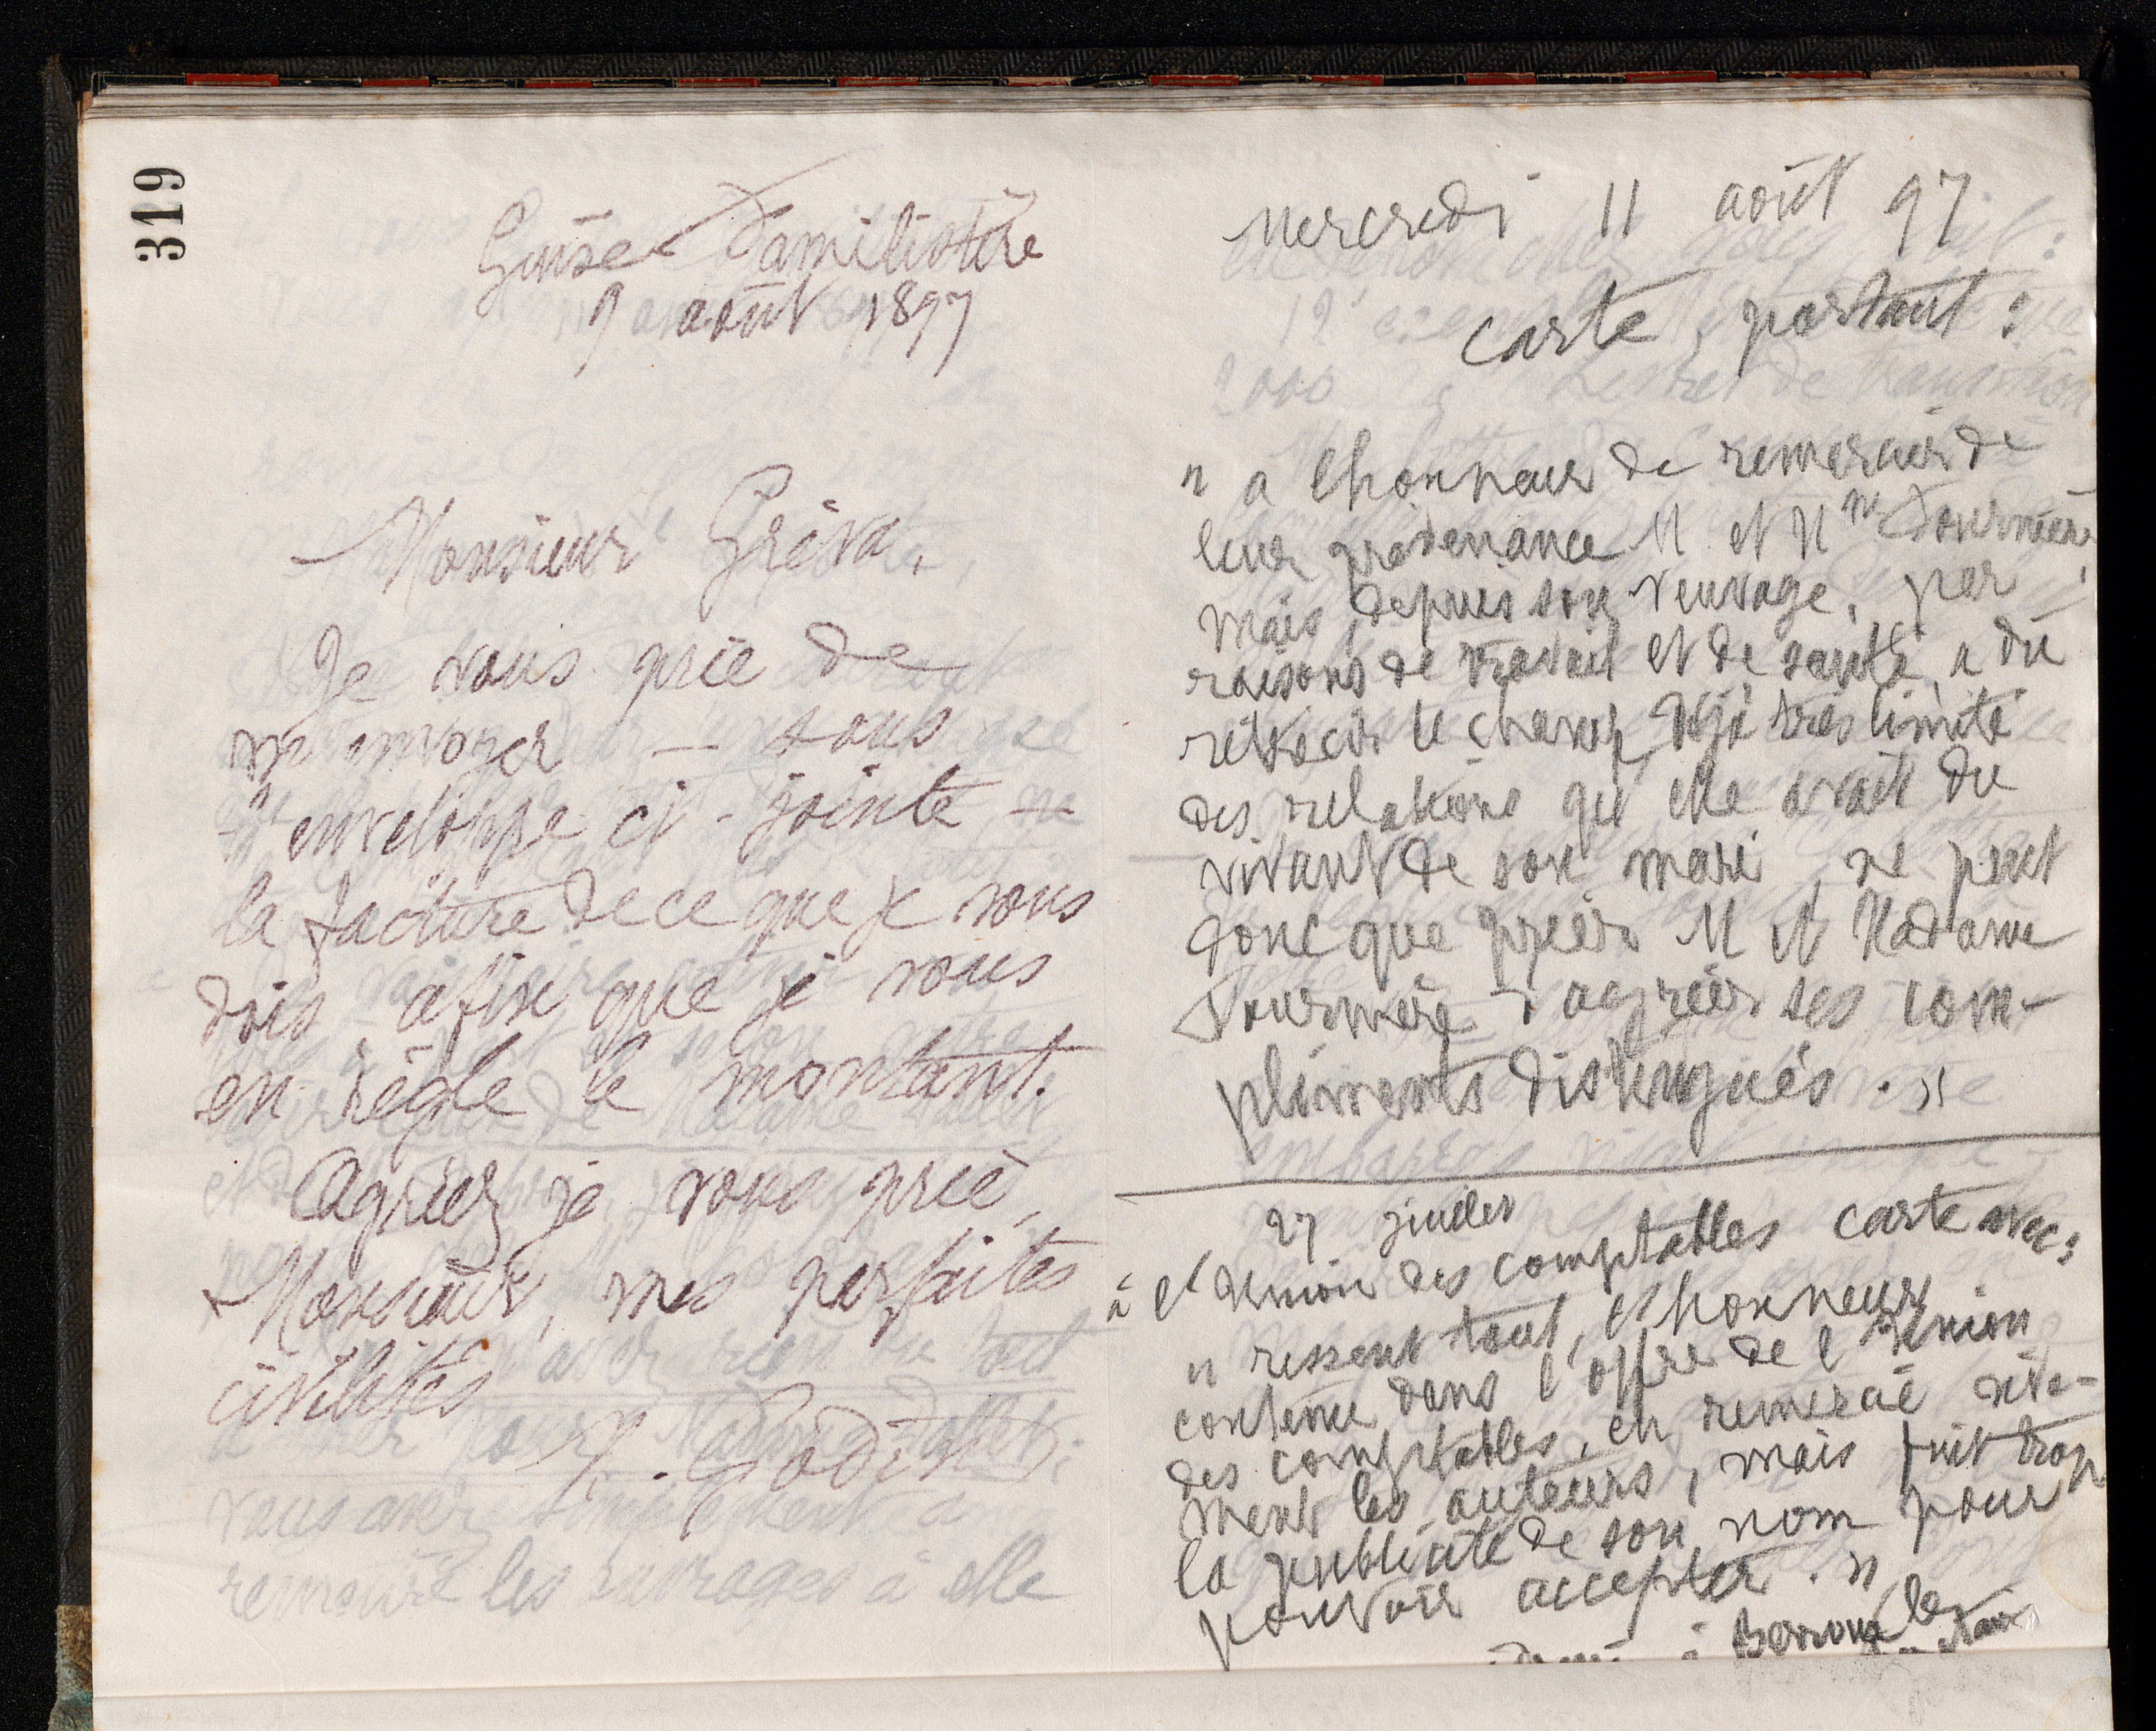 319
Guise Familistère
9 août 1897
Monsieur Grèva,
Je vous prie de
m'envoyer — sous
enveloppe ci-jointe —
la facture de ce que je vous
dois afin que je vous
en règle le montant.
Agréez je vous prie,
Monsieur, mes parfaites
civilités
M. Godin
Mercredi 11 août 97
Carte portant :
" a l'honneur de remercier de
leur prévenance M et Mme Fournière,
mais, depuis son veuvage, par
raisons de travail et de santé, a dû
rétrécir le champ déjà très limité
des relations qu'elle avait du
vivant de son mari, ne peut
donc que prier M et Madame
Fournière d'agréer ses com-
pliments distingués. "
27 juillet
à l'Union des comptables carte avec :
" ressent tout l'honneur
contenu dans l'offre de l'Union
des comptables, en remercie vive-
ment les auteurs, mais fuit trop
la publicité de son nom pour
pouvoir accepter. "